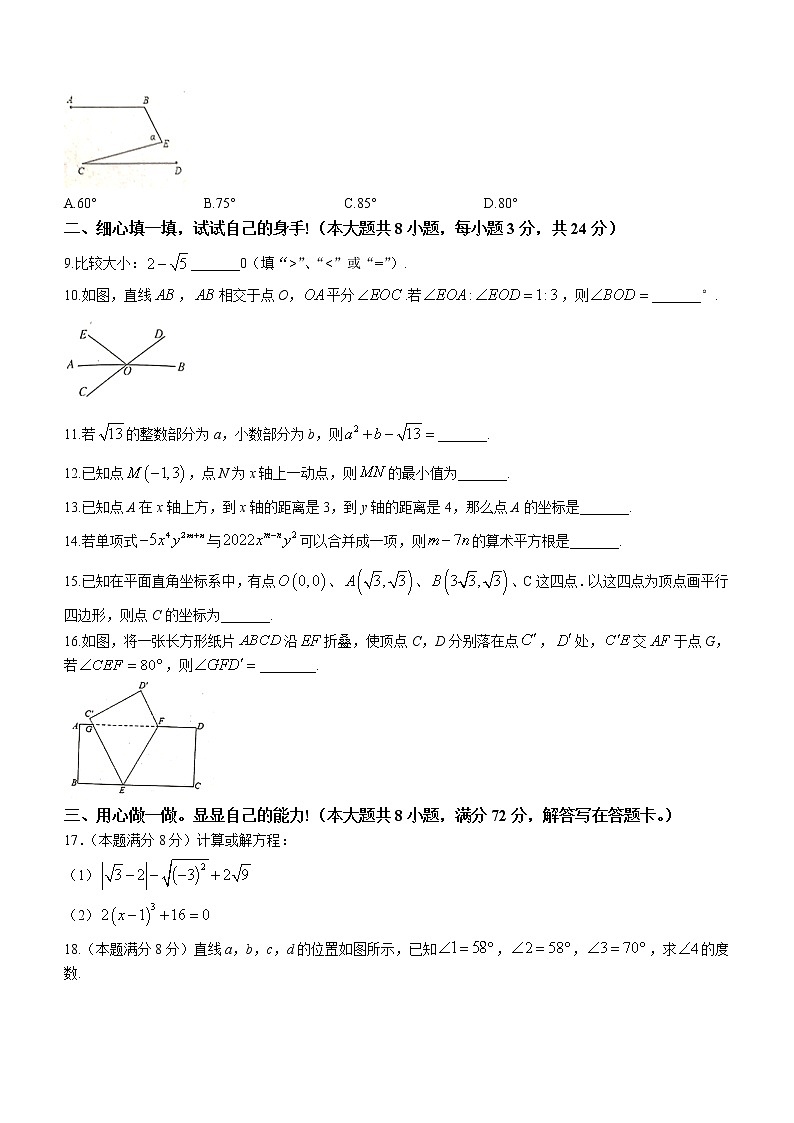 A B
α E
C D
A.60° B.75° C.85° D.80°
二、细心填一填，试试自己的身手!（本大题共 8 小题，每小题 3 分，共 24 分）
9.比较大小：2－√5 _______0（填“>”、“<”或“=”）.
10.如图，直线 AB，AB 相交于点 O，OA 平分∠EOC.若∠EOA:∠EOD=1:3，则∠BOD=_______°.
E D
A O B
C
11.若√13的整数部分为 a，小数部分为 b，则a²+b－√13=_______.
12.已知点 M(－1,3)，点 N 为 x 轴上一动点，则 MN 的最小值为_______.
13.已知点 A 在 x 轴上方，到 x 轴的距离是 3，到 y 轴的距离是 4，那么点 A 的坐标是_______.
14.若单项式－5x⁴y²ᵐ⁺ⁿ与2022xᵐ⁻ⁿy²可以合并成一项，则m－7n的算术平方根是_______.
15.已知在平面直角坐标系中，有点 O(0,0)、A(√3,√3)、B(3√3,√3)、C 这四点．以这四点为顶点画平行
四边形，则点 C 的坐标为_______.
16.如图，将一张长方形纸片 ABCD 沿 EF 折叠，使顶点 C，D 分别落在点C′，D′处，C′E交 AF 于点 G，
若∠CEF=80°，则∠GFD′=________.
D′
C′
A G F D
B E C
三、用心做一做。显显自己的能力!（本大题共 8 小题，满分 72 分，解答写在答题卡。）
17.（本题满分 8 分）计算或解方程：
（1）|√3－2|－√(－3)²+2√9
（2）2(x－1)³+16=0
18.（本题满分 8 分）直线 a，b，c，d 的位置如图所示，已知∠1=58°，∠2=58°，∠3=70°，求∠4的度
数.